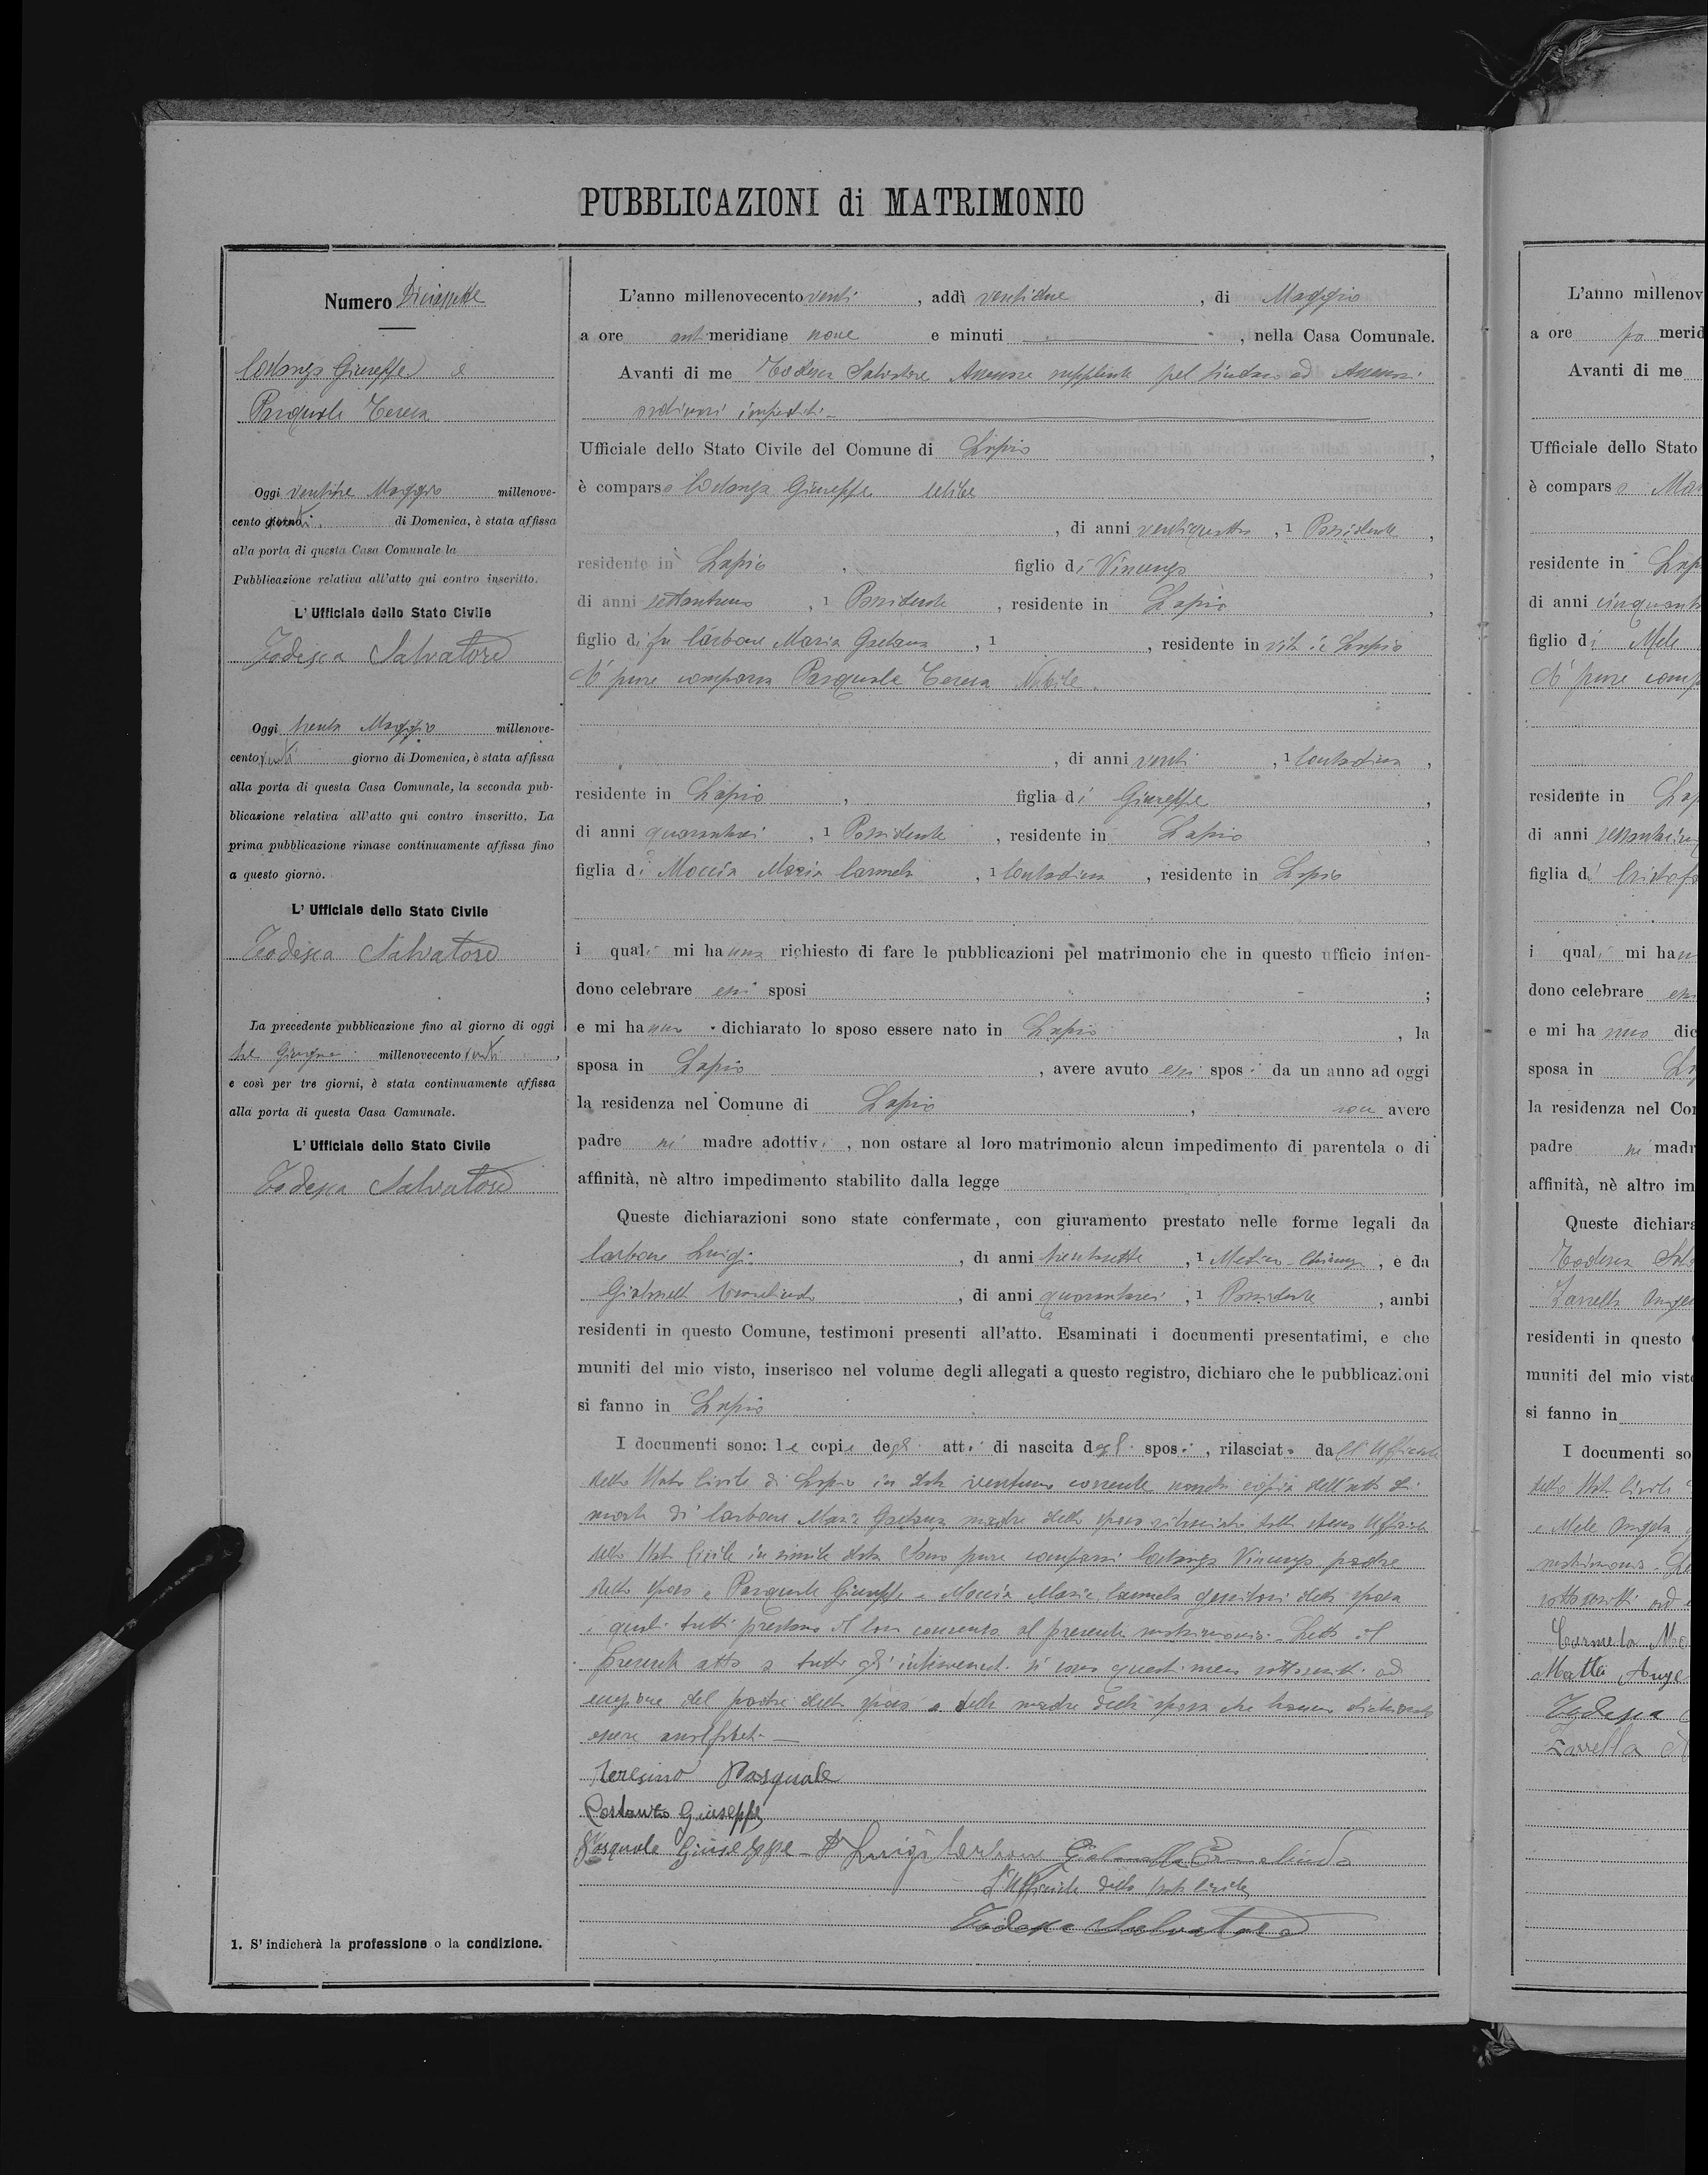 PUBBLICAZIONI di MATRIMONIO
Numero Diciassette
Costanza Giuseppe e
Pasquale Teresa
Oggi ventitre Maggio millenove-
cento venti giorno di Domenica, è stata affissa
alla porta di questa Casa Comunale la
Pubblicazione relativa all'atto qui contro inscritto.
L' Ufficiale dello Stato Civile
Todesca Salvatore
Oggi trenta Maggio millenove-
cento venti giorno di Domenica, è stata affissa
alla porta di questa Casa Comunale, la seconda pub-
blicazione relativa all'atto qui contro inscritto. La
prima pubblicazione rimase continuamente affissa fino
a questo giorno.
L' Ufficiale dello Stato Civile
Todesca Salvatore
La precedente pubblicazione fino al giorno di oggi
tre Giugno millenovecento venti,
e così per tre giorni, è stata continuamente affissa
alla porta di questa Casa Camunale.
L' Ufficiale dello Stato Civile
Todesca Salvatore
1. S' indicherà la professione o la condizione.
L'anno millenovecento venti, addì ventidue, di Maggio
a ore antimeridiane nove e minuti , nella Casa Comunale.
Avanti di me Todesca Salvatore Assessore supplente pel Sindaco ed Assessori
ordinari impediti
Ufficiale dello Stato Civile del Comune di Lapio,
è comparso Costanza Giuseppe celibe
, di anni ventiquattro, 1 Possidente,
residente in Lapio, figlio di Vincenzo,
di anni settantuno, 1 Possidente, residente in Lapio,
figlio di fu Carbone Maria Gaetana, 1 , residente in vita in Lapio
È pure comparsa Pasquale Teresa Nubile.
, di anni venti, 1 Contadina,
residente in Lapio, figlia di Giuseppe,
di anni quarantasei, 1 Possidente, residente in Lapio,
figlia di Moccia Maria Carmela, 1 Contadina, residente in Lapio
i quali mi hanno richiesto di fare le pubblicazioni pel matrimonio che in questo ufficio inten-
dono celebrare essi sposi ;
e mi hanno dichiarato lo sposo essere nato in Lapio, la
sposa in Lapio, avere avuto essi sposi da un anno ad oggi
la residenza nel Comune di Lapio, non avere
padre nè madre adottivi, non ostare al loro matrimonio alcun impedimento di parentela o di
affinità, nè altro impedimento stabilito dalla legge
Queste dichiarazioni sono state confermate, con giuramento prestato nelle forme legali da
Carbone Luigi, di anni trentasette, 1 Medico-Chirurgo, e da
Giovanni Ermelindo, di anni quarantasei, 1 Possidente, ambi
residenti in questo Comune, testimoni presenti all'atto. Esaminati i documenti presentatimi, e che
muniti del mio visto, inserisco nel volume degli allegati a questo registro, dichiaro che le pubblicazioni
si fanno in Lapio
I documenti sono: le copie degli atti di nascita degli sposi, rilasciate dall'Ufficiale
dello Stato Civile di Lapio in data ventuno corrente nonchè copia dell'atto di
morte di Carbone Maria Gaetana madre dello sposo rilasciata dallo stesso Ufficiale
dello Stato Civile in simile data. Sono pure comparsi Costanza Vincenzo padre
dello sposo e Pasquale Giuseppe e Moccia Maria Carmela genitori della sposa
i quali tutti prestano il loro consenso al presente matrimonio. Letto il
presente atto a tutti gli intervenuti si sono questi meco sottoscritti ad
eccezione del padre dello sposo e della madre della sposa che hanno dichiarato
essere analfabeti.
Teresina Pasquale
Costanza Giuseppe
Pasquale Giuseppe - Luigi Carbone Ermelindo
L'Ufficiale dello Stato Civile
Todesca Salvatore
L'anno millenov
a ore po merid
Avanti di me
Ufficiale dello Stato
è comparso
residente in Lap
di anni
figlio di Mele
È pure comp
residente in Lap
di anni
figlia di
i quali mi han
dono celebrare essi
e mi hanno dic
sposa in
la residenza nel Con
padre nè madr
affinità, nè altro im
Queste dichiara
Todesca
Zarrella Ange
residenti in questo
muniti del mio visto
si fanno in
I documenti so
dello Stato Civile
e Mele Angela
matrimonio.
sottoscritti ad
Carmela
Angel
Todesca
Zarrella